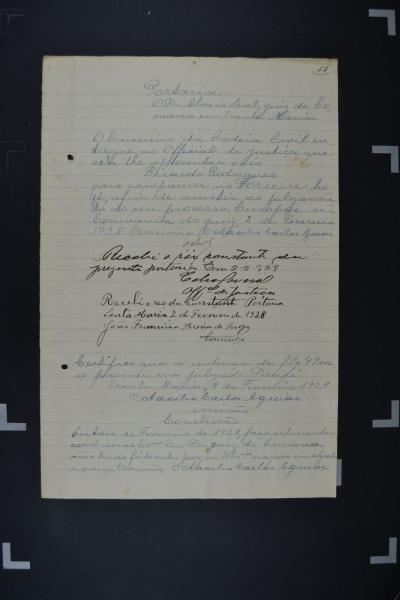 51
Portaria
O Dr. Alvaro Leal, juiz de Co
marca em Santa Maria
O Carcereiro da Cadeia Civil en
tregue ao Official de Justiça que
esta lhe apresentar o réo
Ricardo Rodrigues
para comparecer no Forum ho
je, afim de assistir ao julgamen
to do seu processo. Cumpra-se.
Santa Maria, 2 de Fevereiro
1928. Escrivão Octacilio Carlos Aguiar
Recebi o réo constante da
presente portaria Em 2-2-928
Off. de Justiça
Recebi o reo da constante Portaria
Santa Maria 2 de Fevereiro de 1928
João Francisco Pereira de Souza
Carcereiro
Certifico que a sentença de fls 49
passou em julgado. Dou fé
Santa Maria, 8 de Fevereiro 1928
Octacilio Carlos Aguiar
escrivão
Conclusão
de Fevereiro de 1928, faço estes autos
conclusos ao Exmo. Sr. Dr. Juiz de Comarca
não o tendo feito antes porque
Escrivão, Octacilio Carlos Aguiar